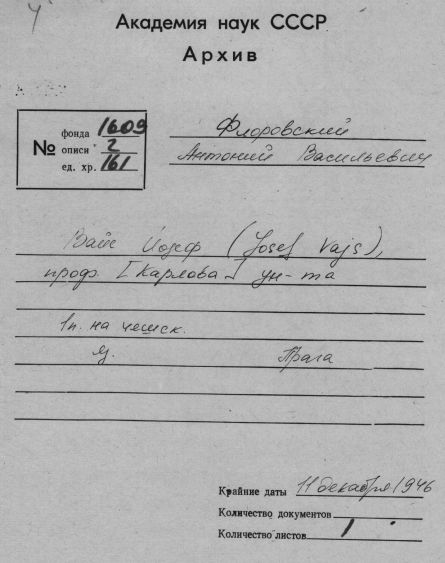 Академия наук СССР
Архив
№
фонда 1609
описи 2
ед. хр. 161
Флоровский
Антоний Васильевич
Вайс Йозеф (Josef Vajs),
проф. [Карлова] ун-та
1п. на чешск.
яз. Прага
Крайние даты 11 декабря 1946
Количество документов
Количество листов 1